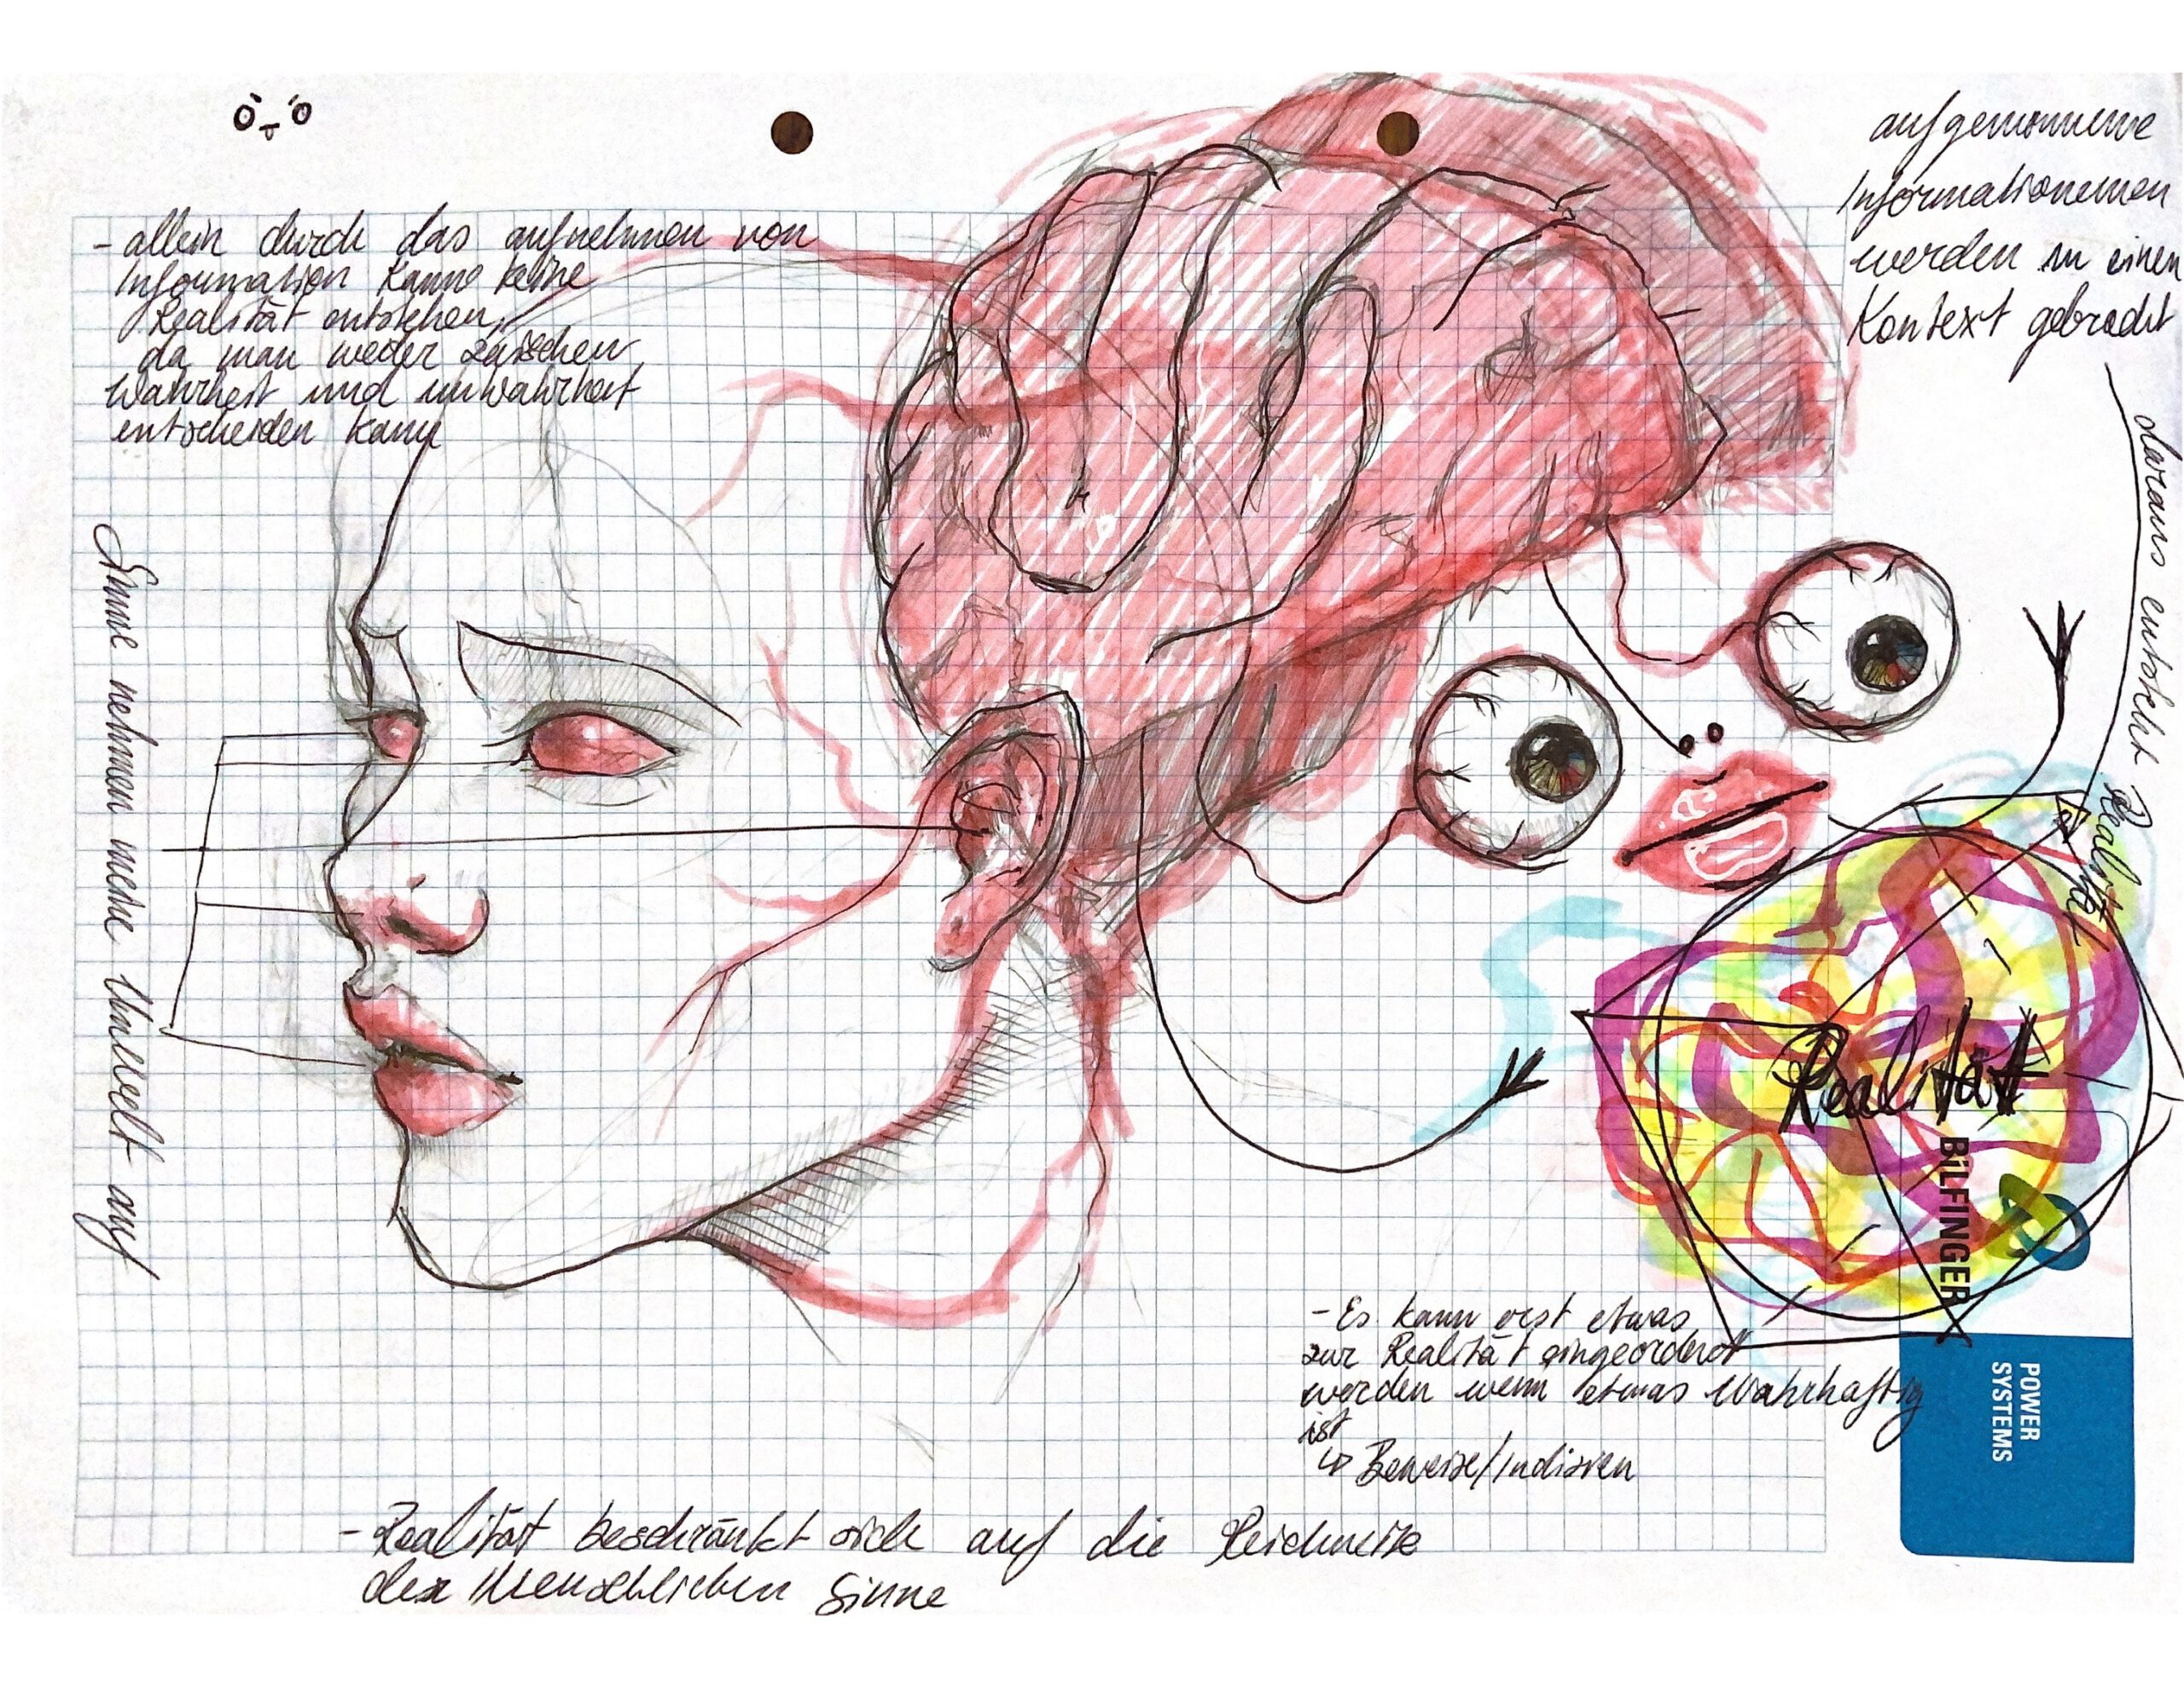 - allein durch das aufnehmen von
Information kann keine
Realität entstehen,
da man weder zwischen
Wahrheit und unwahrheit
entscheiden kann
Sinne nehmen meine Umwelt auf
aufgenommene
Informationenen
werden in einen
Kontext gebracht
daraus entsteht Realität
Realität
BILFINGER
POWER
SYSTEMS
- Es kann erst etwas
zur Realität eingeordnet
werden wenn etwas Wahrhaftig
ist
↳ Beweise/Indizien
- Realität beschränkt sich auf die Reichweite
der Menschlichen Sinne